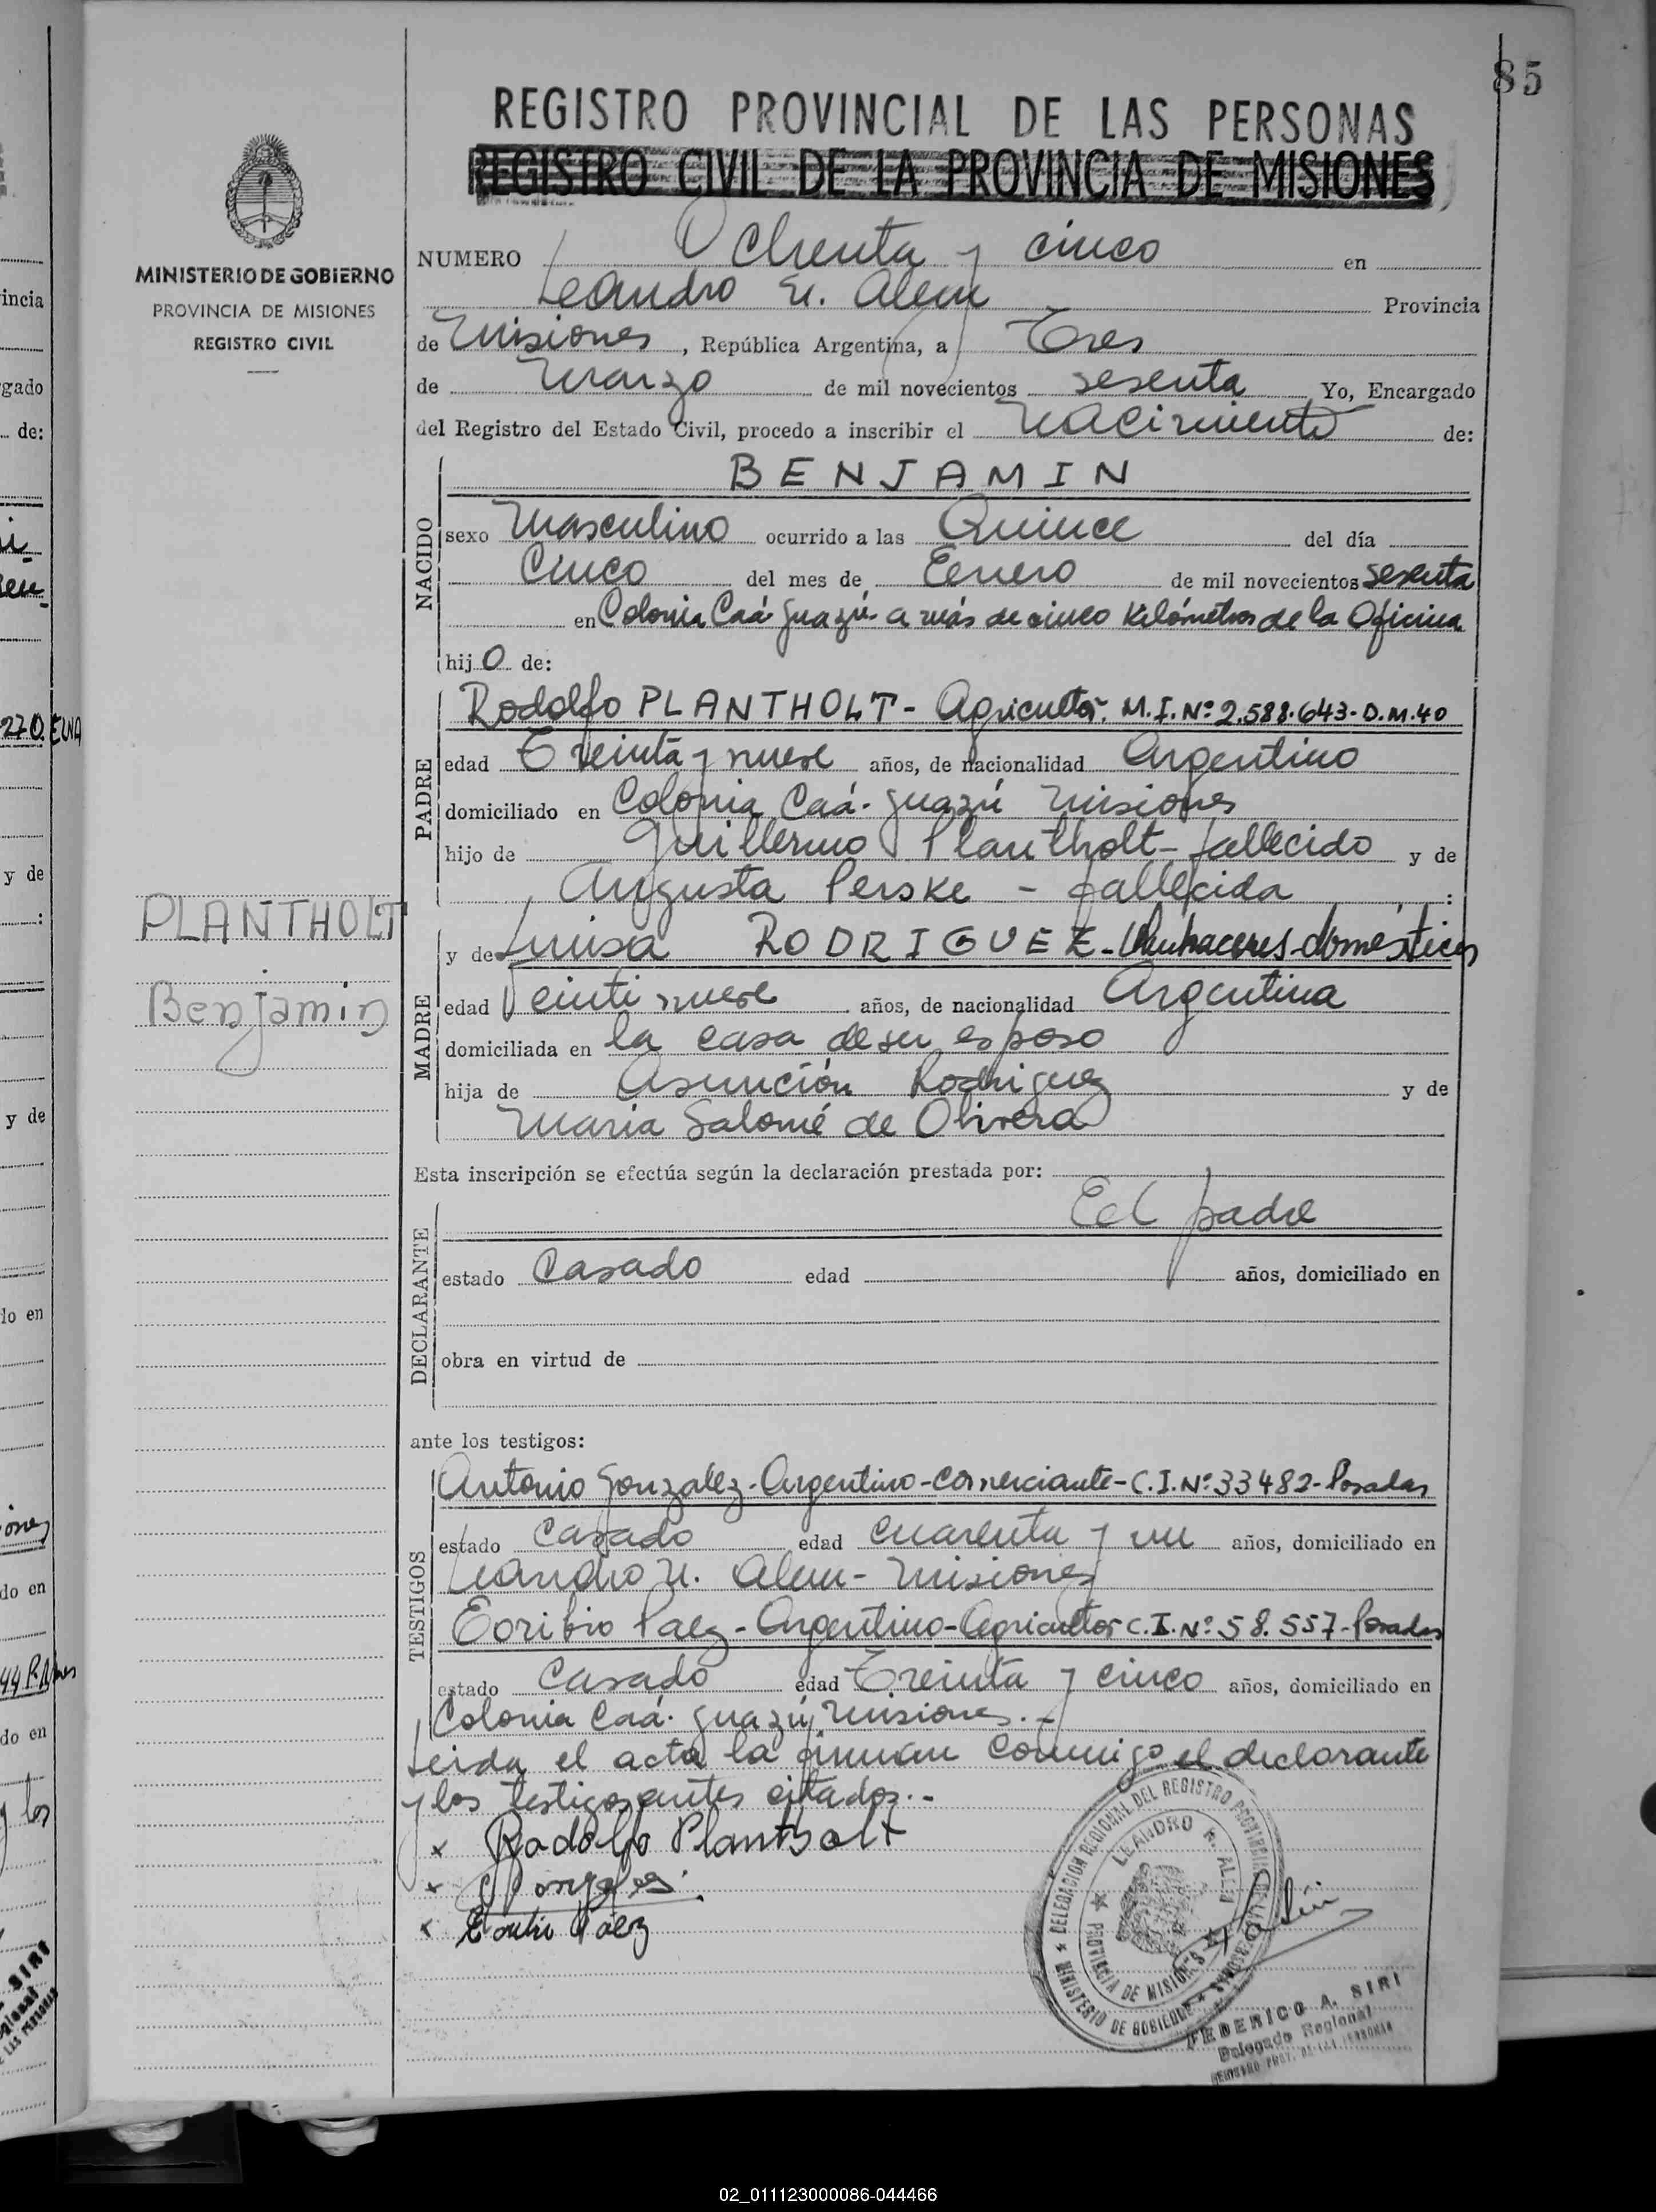 85
REGISTRO PROVINCIAL DE LAS PERSONAS
REGISTRO CIVIL DE LA PROVINCIA DE MISIONES
MINISTERIO DE GOBIERNO
PROVINCIA DE MISIONES
REGISTRO CIVIL
NUMERO Ochenta y cinco en
Leandro N. Alem Provincia
de Misiones, República Argentina, a Tres
de Marzo de mil novecientos sesenta Yo, Encargado
del Registro del Estado Civil, procedo a inscribir el Nacimiento de:
NACIDO
BENJAMIN
sexo Masculino ocurrido a las Quince del día
Cinco del mes de Enero de mil novecientos sesenta
en Colonia Caá-Guazú a más de cinco Kilómetros de la Oficina
hijo de:
PADRE
Rodolfo PLANTHOLT - Agricultor. M.I.Nº 2.588.643-D.M.40
edad Treinta y nueve años, de nacionalidad Argentino
domiciliado en Colonia Caá-Guazú Misiones
hijo de Guillermo Plantholt - fallecido y de
Augusta Perske - fallecida :
PLANTHOLT
Benjamin
MADRE
y de Luisa RODRIGUEZ - Quehaceres domésticos
edad Veintinueve años, de nacionalidad Argentina
domiciliada en la casa de su esposo
hija de Asunción Rodriguez y de
Maria Salomé de Olivera
Esta inscripción se efectúa según la declaración prestada por:
DECLARANTE
El padre
estado Casado edad años, domiciliado en
obra en virtud de
ante los testigos:
TESTIGOS
Antonio Gonzalez-Argentino-Comerciante-C.I.Nº 33482-Posadas
estado Casado edad cuarenta y un años, domiciliado en
Leandro N. Alem - Misiones
Toribio Paez-Argentino-Agricultor C.I.Nº 58.557-Posadas
estado Casado edad Treinta y cinco años, domiciliado en
Colonia Caá-Guazú, Misiones.-
Leida el acta la firman conmigo el declarante
y los testigos antes citados.-
x Rodolfo Plantholt
x Gonzalez
x Toribio Páez
DELEGACION REGIONAL DEL REGISTRO PROVINCIAL DE LAS PERSONAS
MINISTERIO DE GOBIERNO
LEANDRO N. ALEM
PROVINCIA DE MISIONES
FEDERICO A. SIRI
Delegado Regional
REGISTRO PROV. DE LAS PERSONAS
02_011123000086-044466